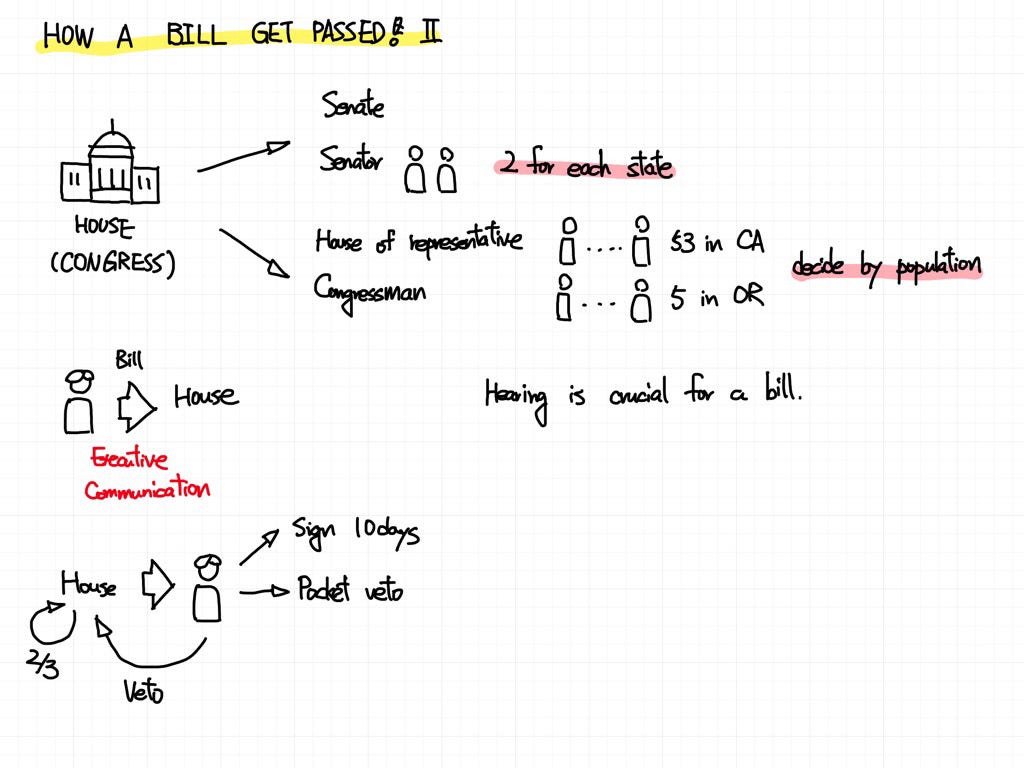 HOW A BILL GET PASSED?! II
Senate
Senator
2 for each state
HOUSE
(CONGRESS)
House of representative
53 in CA
Congressman
5 in OR
decide by population
Bill
House
Executive
Communication
Hearing is crucial for a bill.
Sign 10days
House
Pocket veto
2/3
Veto